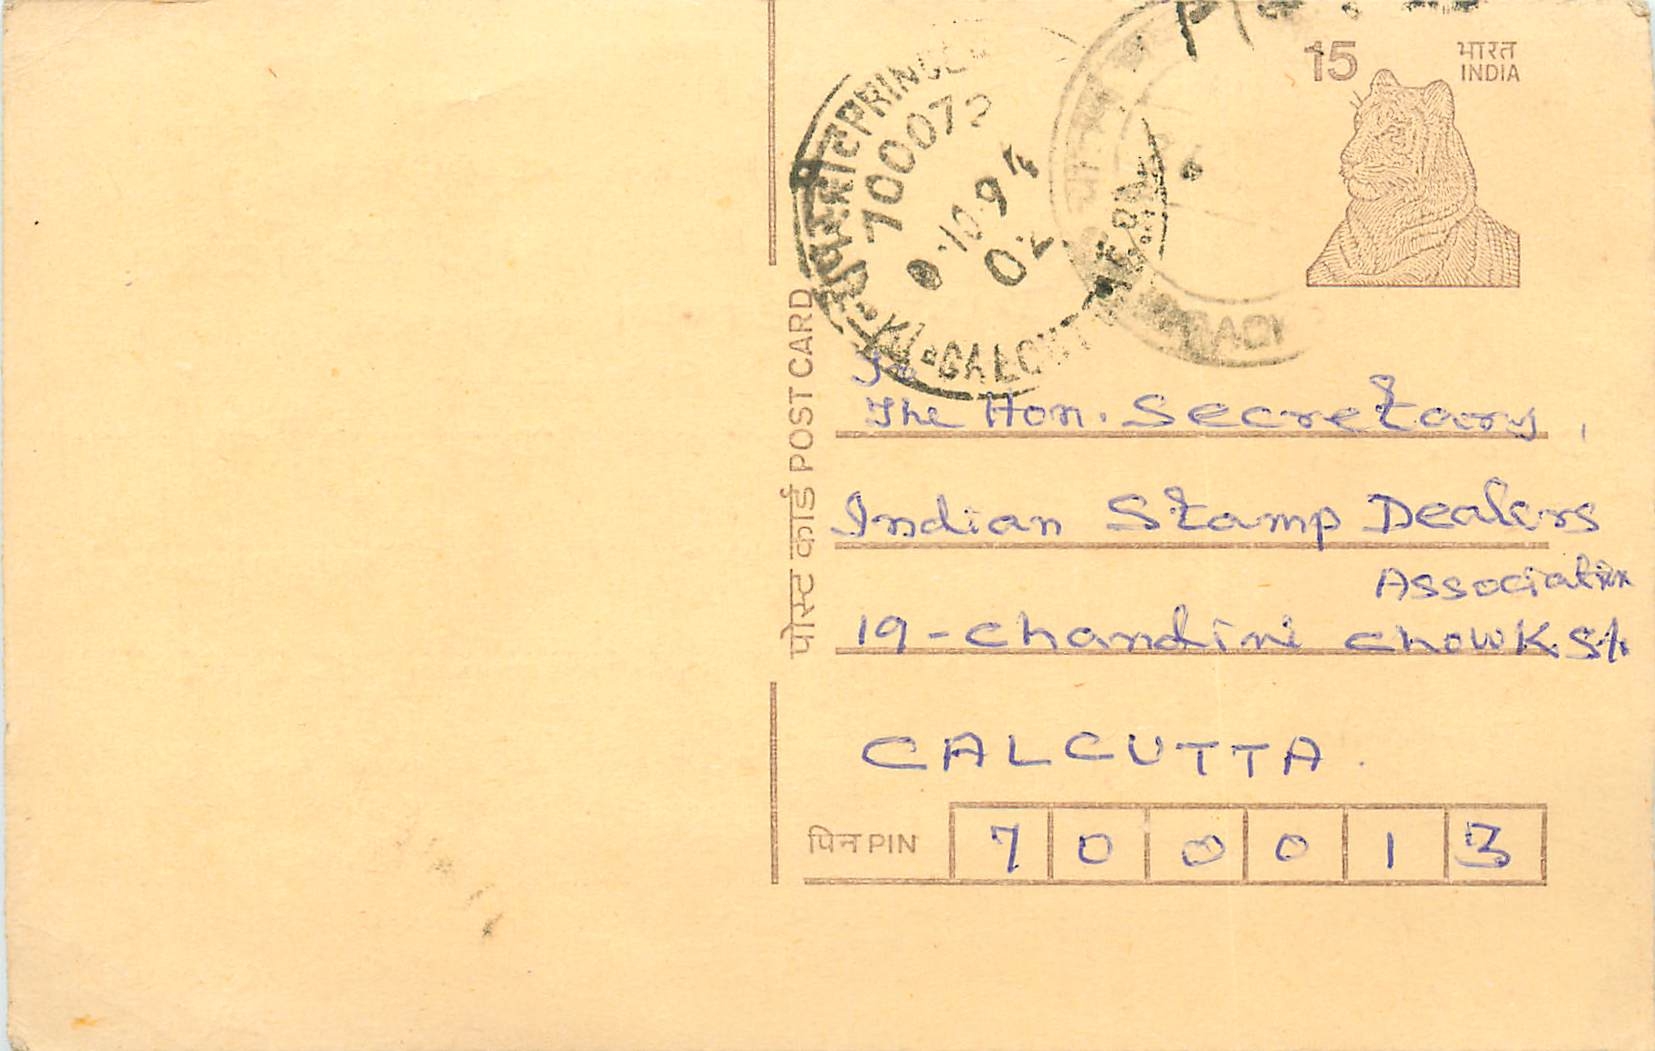 15
भारत
INDIA
PRINCE
700072
10 94
02
CALCUTTA
पोस्ट कार्ड POST CARD
To
The Hon. Secretary,
Indian Stamp Dealers
Association
19-Chandini Chowk St.
CALCUTTA.
पिन PIN 7 0 0 0 1 3